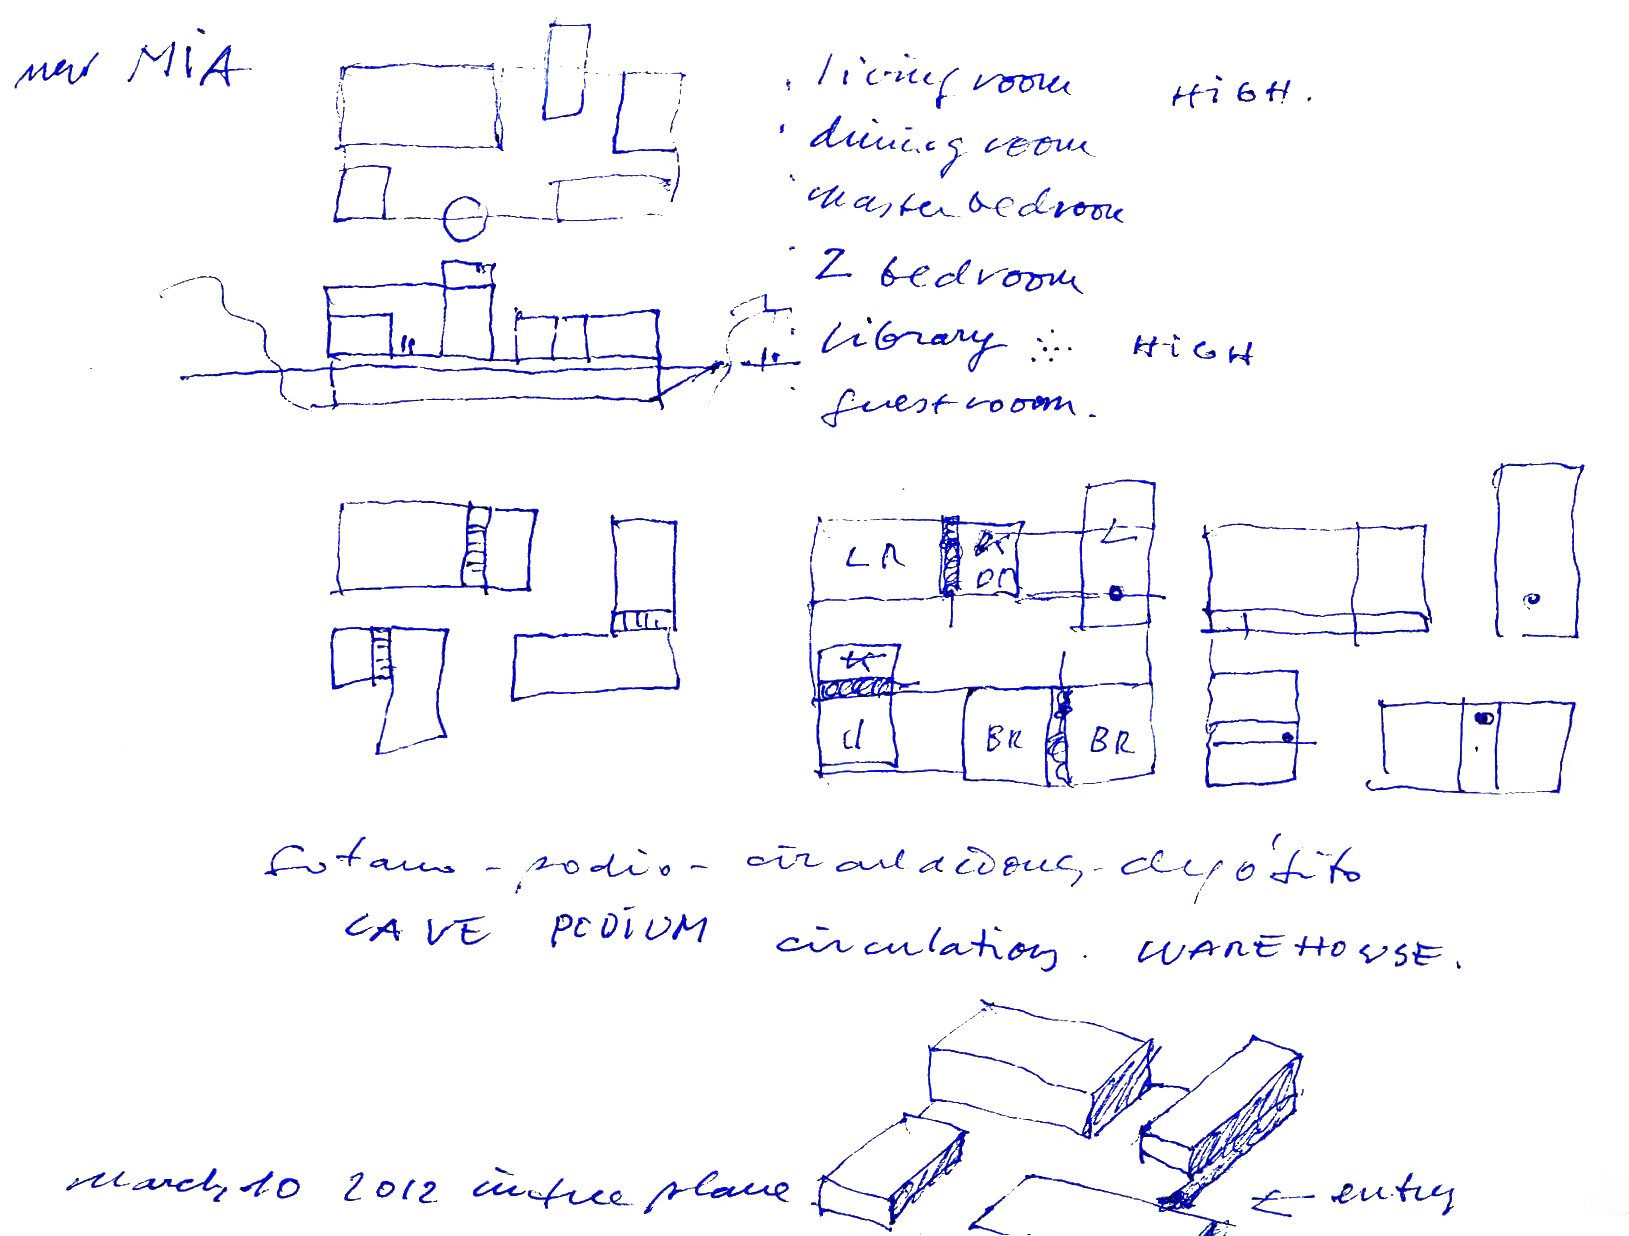 new MiA
. living room HiGH.
. dining room
. master bedroom
. 2 bedroom
. library HiGH
. guest room.
LR DR L
K
BR BR
sotano - podio - circulaciones - depósito
CAVE PODiUM circulation. WAREHOUSE.
March 10 2012 in the plane
← entry